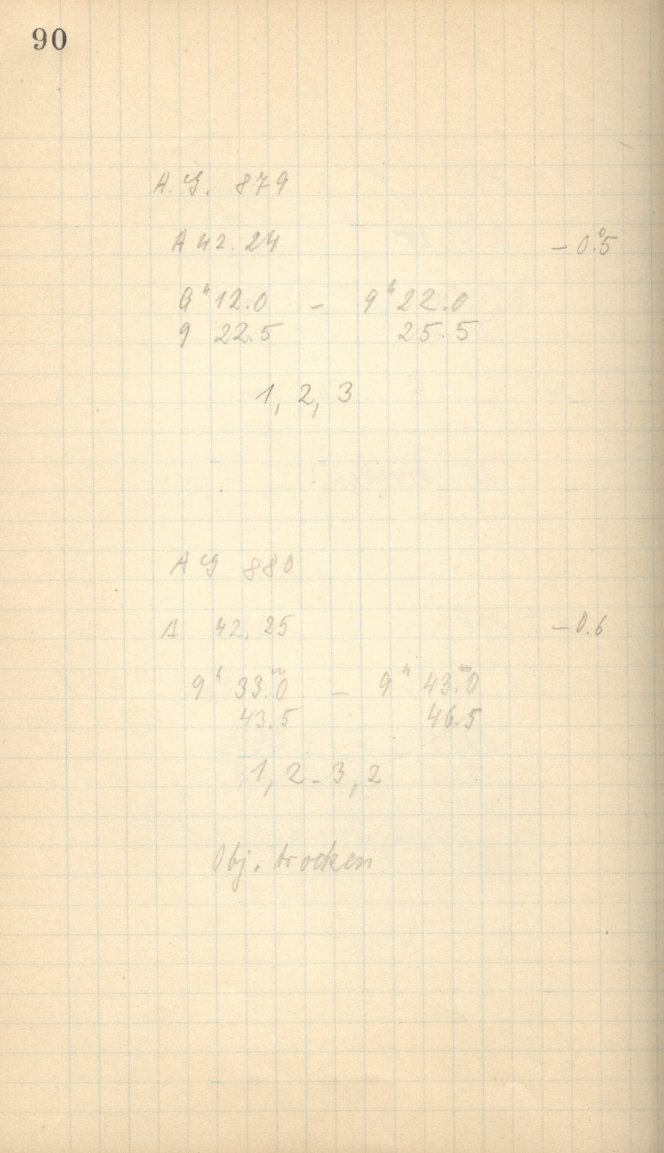 90
A.G. 879
A 42.24 -0.°5
9ʰ12.0 - 9ʰ22.0
9 22.5 25.5
1, 2, 3
AG 880
A 42.25 -0.6
9ʰ 33.ᵐ0 - 9ʰ 43.ᵐ0
43.5 46.5
1, 2-3, 2
Obj. trocken